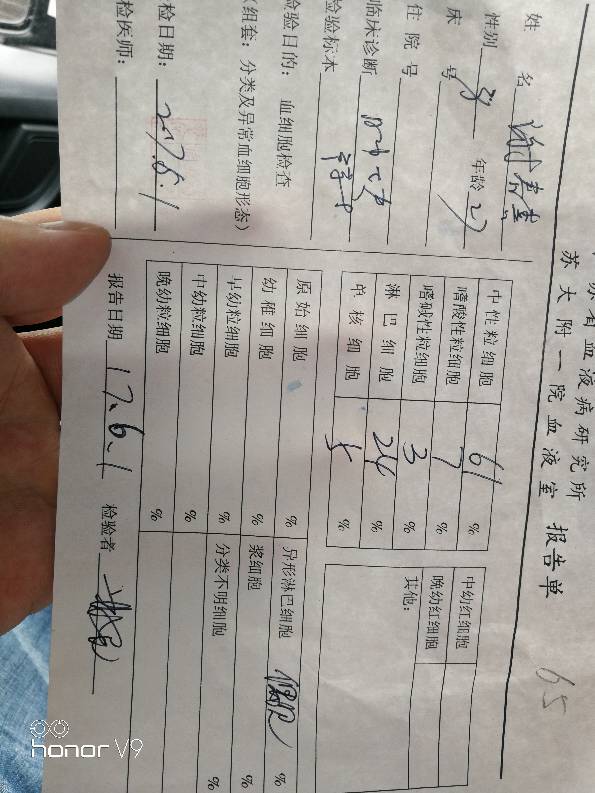 苏省血液病研究所
苏大附一院血液室 报告单
65
姓 名
性别 年龄 27
床 号
住 院 号
临床诊断
检验标本
检验目的: 血细胞检查
(组套: 分类及异常血细胞形态)
检日期: 2017.6.1
检医师:
中性粒细胞 61 %
嗜酸性粒细胞 7 %
嗜碱性粒细胞 3 %
淋 巴 细 胞 24 %
单 核 细 胞 5 %
中幼红细胞
晚幼红细胞
其他:
原 始 细 胞 % 异形淋巴细胞 偶见 %
幼 稚 细 胞 % 浆细胞 %
早幼粒细胞 % 分类不明细胞 %
中幼粒细胞 %
晚幼粒细胞 %
报告日期 17.6.1 检验者
honor V9